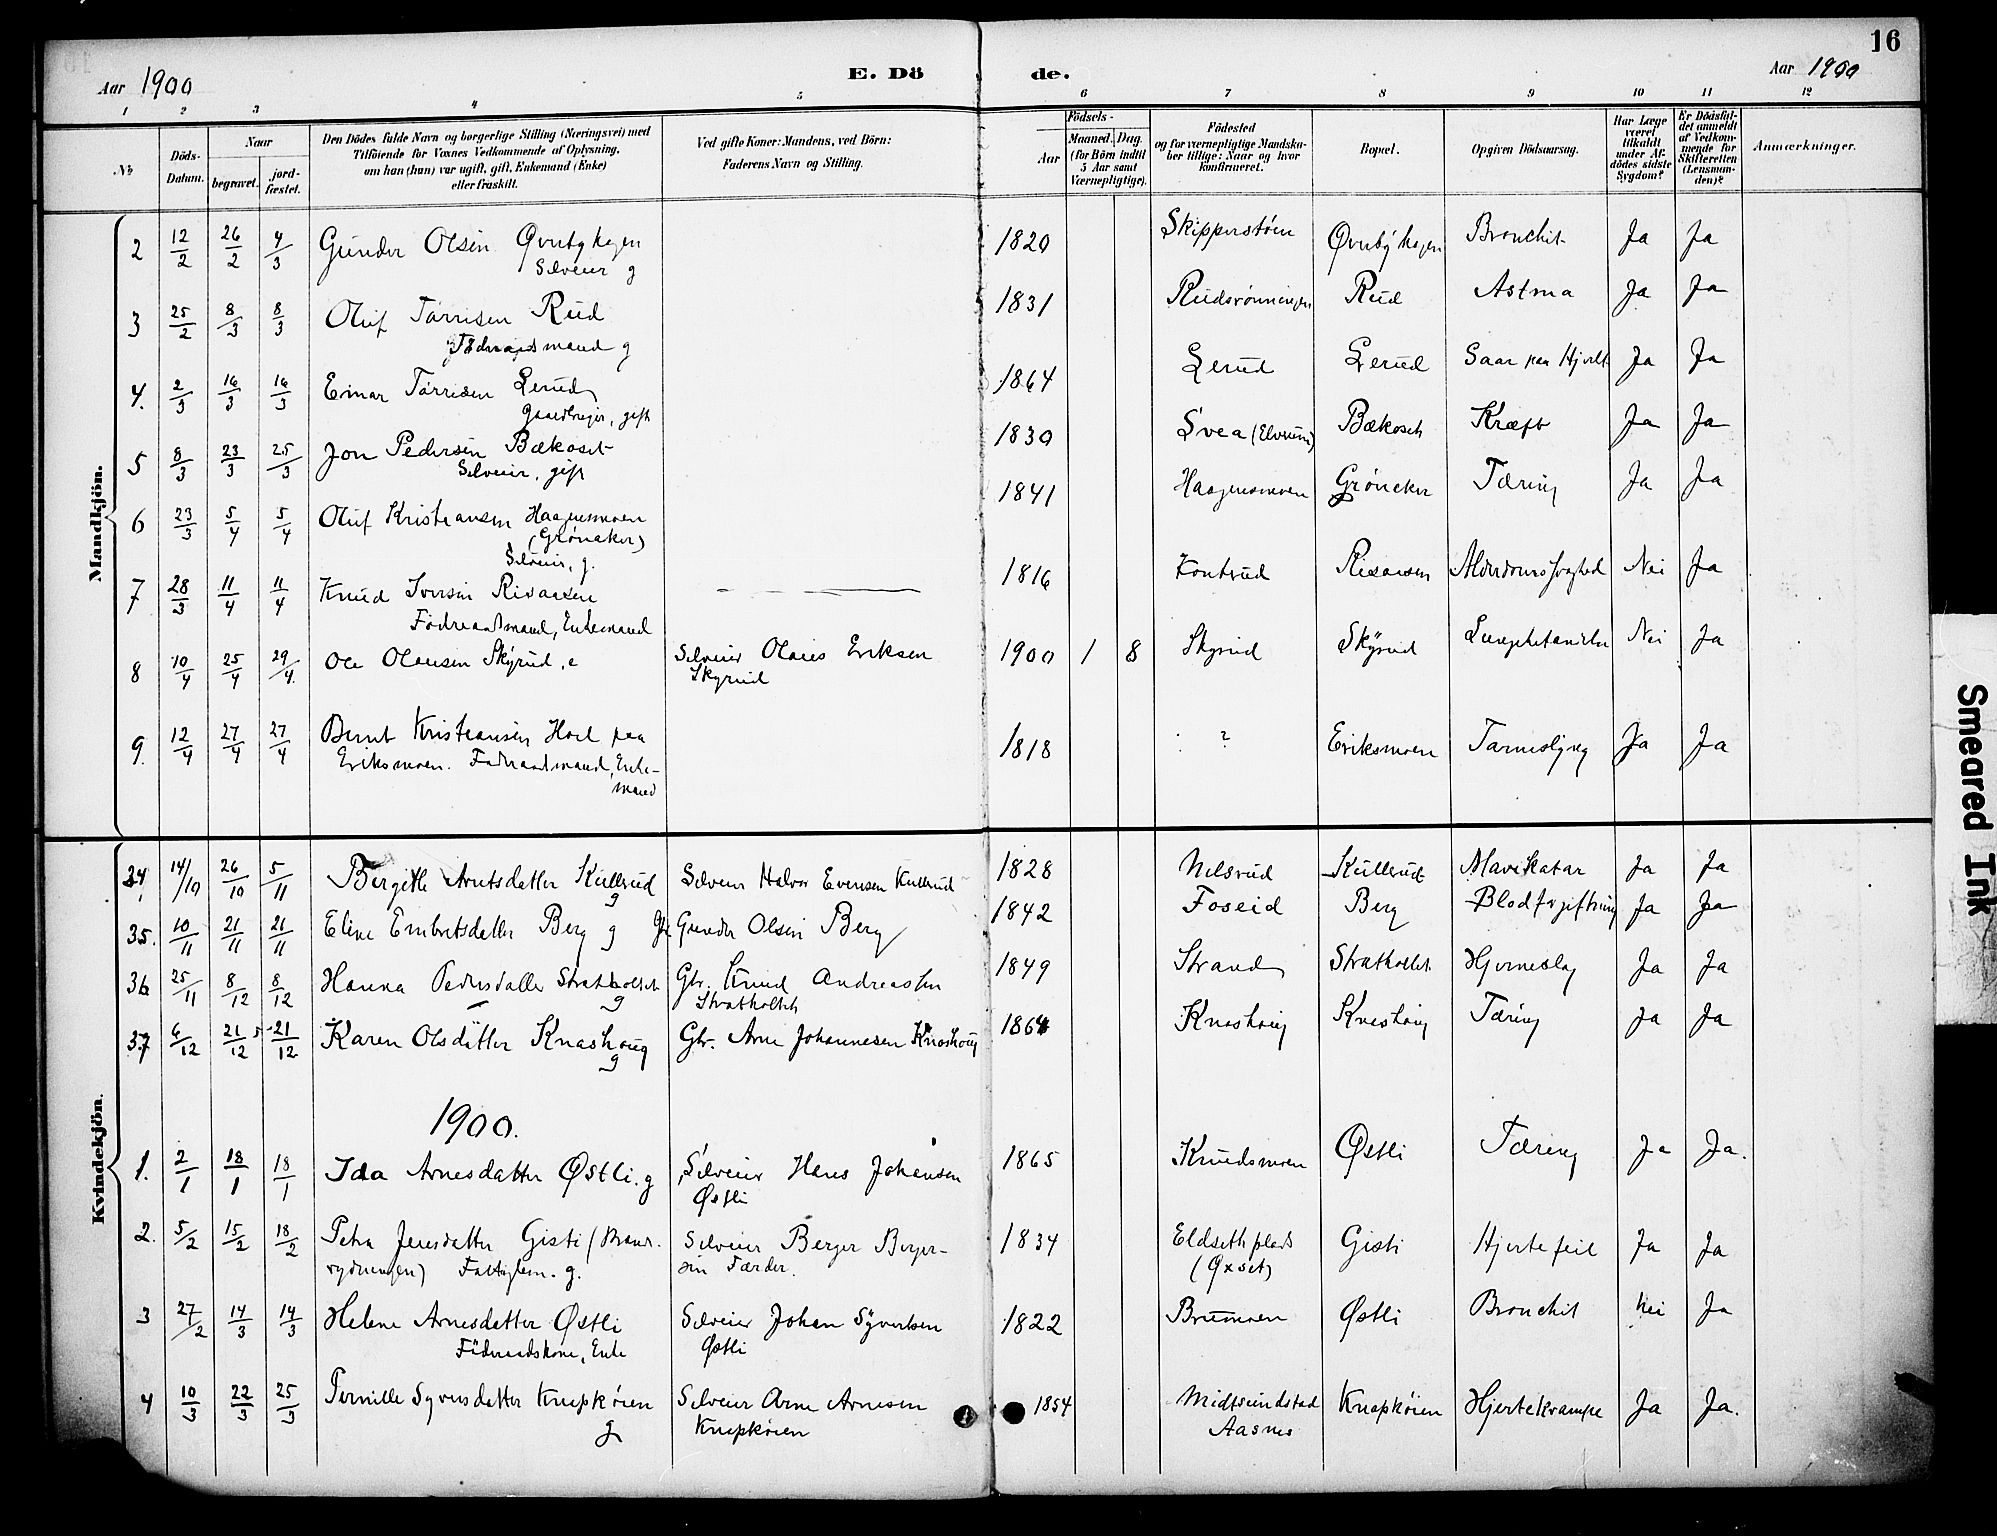 16
Aar 1900 E. Dö de. Aar 1900
1 2 3 4 5 6 7 8 9 10 11 12
No. Döds-Datum. Naar begravet. jord-fæstet. Den Dödes fulde Navn og borgerlige Stilling (Næringsvei) med Tilföiende for Voxnes Vedkommende af Oplysning, om han (hun) var ugift, gift, Enkemand (Enke) eller fraskilt. Ved gifte Koner: Mandens, ved Börn: Faderens Navn og Stilling. Födsels- Aar Maaned. Dag. (for Börn indtil 5 Aar samt Værnepligtige). Födested og for værnepligtige Mandskaber tillige: Naar og hvor konfirmeret. Bopæl. Opgiven Dödsaarsag. Har Læge været tilkaldt under Afdödes sidste Sygdom? Er Dödsfaldet anmeldt af Vedkommende for Skifteretten (Lensmanden)? Anmærkninger.
Mandkjön.
2 12/2 26/2 4/3 Gunder Olsen 1820 Skipperstøen Bronchit Ja Ja
Selveier g
3 25/2 8/3 8/3 Oluf Tørrisen Rud 1831 Rudsrønningen Rud Astma Ja Ja
Føderaadsmand g
4. 2/3 16/3 16/3 Einar Tørrisen Lerud 1864 Lerud Lerud Saar paa Ja Ja
Gaardbruger, gift
5 8/3 23/3 25/3 Jon Pedersen Bækoset 1830 Svea (Elverum) Bækoset Kræft Ja Ja
Selveier, gift
6 23/3 5/4 5/4 Oluf Kristiansen Haagensmoen 1841 Haagensmoen Grønaker Tæring Ja Ja
(Grønaker)
Selveier, g.
7 28/3 11/4 11/4 Knud Iversen Risaasen 1816 Kontrud Risaasen Nei Ja
Föderaadsmand, Enkemand
8 10/4 25/4 29/4. Ole Olausen Skyrud, e Selveier Olaus Eriksen 1900 1 8 Skyrud Skyrud Nei Ja
Skyrud
9. 12/4 27/4 27/4 Bernt Kristiansen Hoel paa 1818 ? Eriksmoen Ja Ja
Eriksmoen. Føderaadsmand, Enke-
mand
Kvindekjön.
34. 14/10 26/10 5/11 Bergitte Arntsdatter Kullerud Selveier Halvor Evensen Kullerud 1828 Nilsrud Kullerud Mavekatar Ja Ja
g
35. 10/11 21/11 21/11 Eline Embretsdatter Berg g Gunder Olsen Berg 1842 Foseid Berg Blodforgiftning Ja Ja
36 25/11 8/12 8/12 Hanna Pedersdatter Stratholtet Gbr. Knud Andreassen 1849 Strand Stratholtet Hjerneslag Ja Ja
g Stratholtet
37 6/12 21/12 21/12 Karen Olsdatter Knashoug Gbr. Arne Johannesen Knashoug 1864 Knashoug Knashoug Tæring Ja Ja
g
1900.
1. 2/1 18/1 18/1 Ida Arnesdatter Østli. g Selveier Hans Johansen 1865 Knudsmoen Østli Tæring Ja Ja.
Østli
2. 5/2 15/2 18/2 Petra Jensdatter Gisti ( Selveier Berger Berger- 1834 Eldseth plads Gisti Hjertefeil Ja Ja
rydningen) Fattiglem. g. sen Færder. (Øxset)
3 27/2 14/3 14/3 Helene Arnesdatter Østli Selveier Johan Syvertsen 1822 Brumoen Østli Bronchit Nei Ja
Föderaadskone, Enke Østli
4 10/3 22/3 25/3 Pernille Syversdatter Knapkøien Selveier Arne Arnesen 1854 Midtsundstad Knapkøien Hjertekrampe Ja Ja.
g Knapkøien Aasnes
Smeared Ink